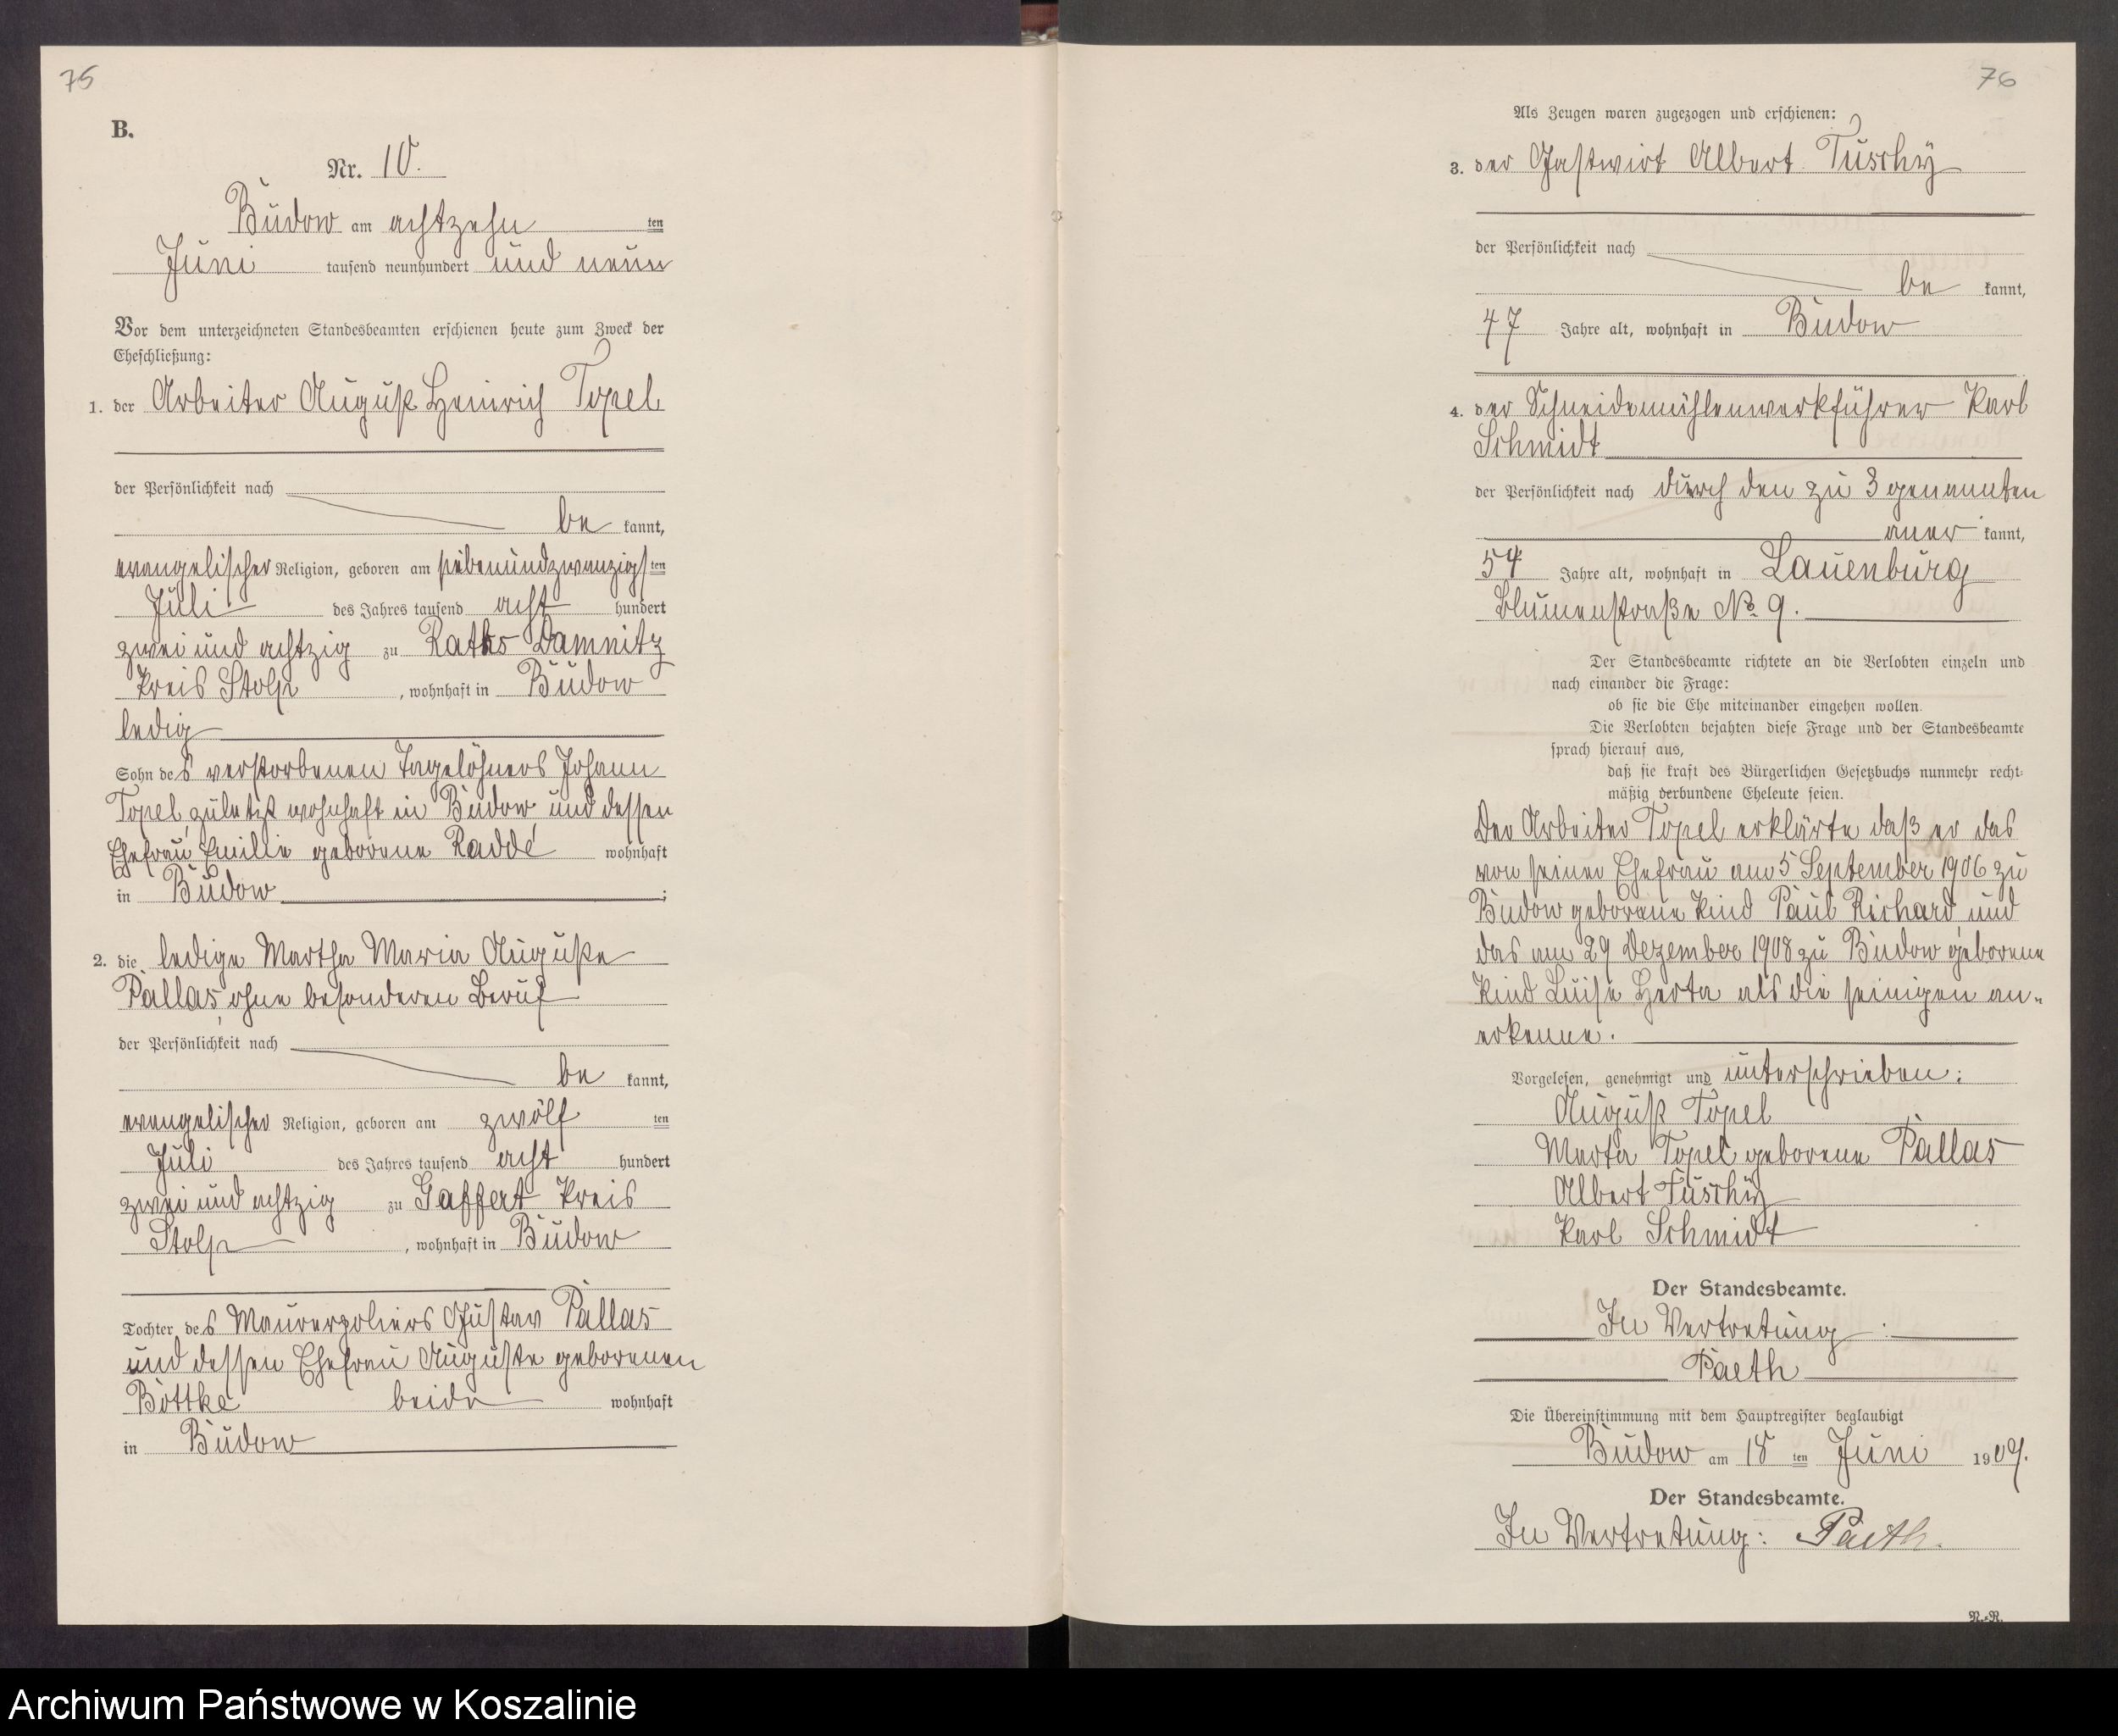 75
B.
Nr. 10.
Büdow am achtzehn ten
Juni tausend neunhundert und neun
Vor dem unterzeichneten Standesbeamten erschienen heute zum Zweck der
Eheschließung:
1. der Arbeiter August Heinrich Topel
der Persönlichkeit nach
be kannt,
evangelischer Religion, geboren am siebenundzwanzigs ten
Juli des Jahres tausend acht hundert
zwei und achtzig zu Raths-Damnitz
Kreis Stolp, wohnhaft in Büdow
ledig
Sohn des verstorbenen Tagelöhners Johann
Topel, zuletzt wohnhaft in Büdow und dessen
Ehefrau Emilie geborene Radde wohnhaft
in Büdow ;
2. die ledige Martha Maria Auguste
Pallas, ohne besonderen Beruf
der Persönlichkeit nach
be kannt,
evangelischer Religion, geboren am zwölf ten
Juli des Jahres tausend acht hundert
zwei und achtzig zu Gaffert Kreis
Stolp, wohnhaft in Büdow
Tochter des Maurerpoliers Gustav Pallas
und dessen Ehefrau Auguste geborenen
Böttke beide wohnhaft
in Büdow
76
Als Zeugen waren zugezogen und erschienen:
3. der Gastwirt Albert Tuschy
der Persönlichkeit nach
be kannt,
47 Jahre alt, wohnhaft in Büdow
4. der Schneidemühlenwerkführer Karl
Schmidt
der Persönlichkeit nach durch den zu 3 genannten
aner kannt,
54 Jahre alt, wohnhaft in Lauenburg
Blumenstraße No 9.
Der Standesbeamte richtete an die Verlobten einzeln und
nach einander die Frage:
ob sie die Ehe miteinander eingehen wollen.
Die Verlobten bejahten diese Frage und der Standesbeamte
sprach hierauf aus,
daß sie kraft des Bürgerlichen Gesetzbuchs nunmehr recht-
mäßig verbundene Eheleute seien.
Der Arbeiter Topel erklärte daß er das
von seiner Ehefrau am 5 September 1906 zu
Büdow geborene Kind Paul Richard und
das am 29 Dezember 1908 zu Büdow geborene
Kind Luise Herta als die seinigen an-
erkenne.
Vorgelesen, genehmigt und unterschrieben:
August Topel
Marta Topel geborene Pallas
Albert Tuschy
Karl Schmidt
Der Standesbeamte.
In Vertretung:
Paeth
Die Übereinstimmung mit dem Hauptregister beglaubigt
Büdow am 18 ten Juni 1909.
Der Standesbeamte.
In Vertretung: Paeth.
N.-R.
Archiwum Państwowe w Koszalinie